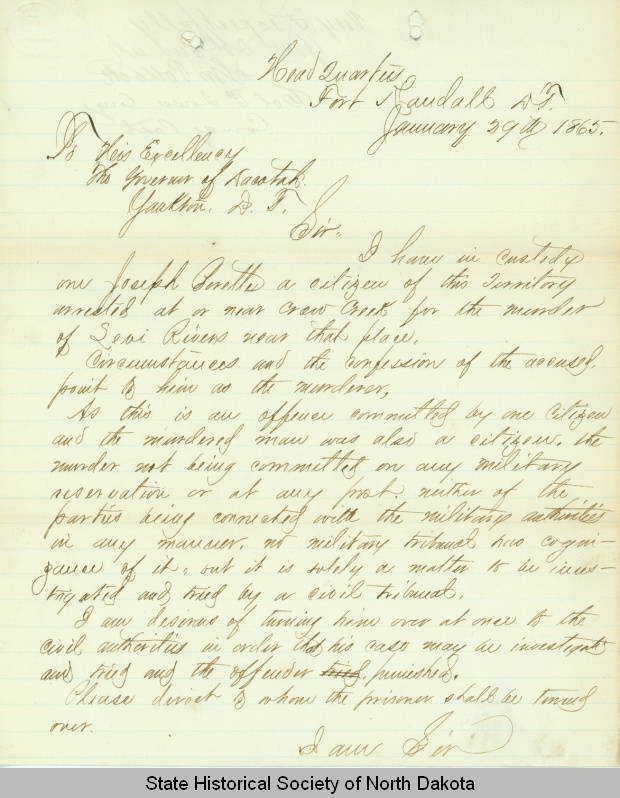 Head Quarters
Fort Randall D.T.
January 29th 1865.
To His Excellency
The Governor of Dacotah.
Yankton. D. T.
Sir,
I have in custody
one Joseph a citizen of this Territory
arrested at or near Crow Creek for the murder
of Levi Rivers near that place.
Circumstances and the confession of the accused,
point to him as the murderer,
As this is an offence committed by one citizen
and the murdered man was also a citizen. the
murder not being committed on any military
reservation or at any post, neither of the
parties being connected with the military authorities
in any manner. no military tribunal has cogni-
zance of it, but it is solely a matter to be inves-
tigated and tried by a civil tribunal.
I am desirous of turning him over at once to the
civil authorities in order that his case may be investigated
and tried and the offender tried, punished.
Please direct to whom the prisoner shall be turned
over.
I am Sir
State Historical Society of North Dakota